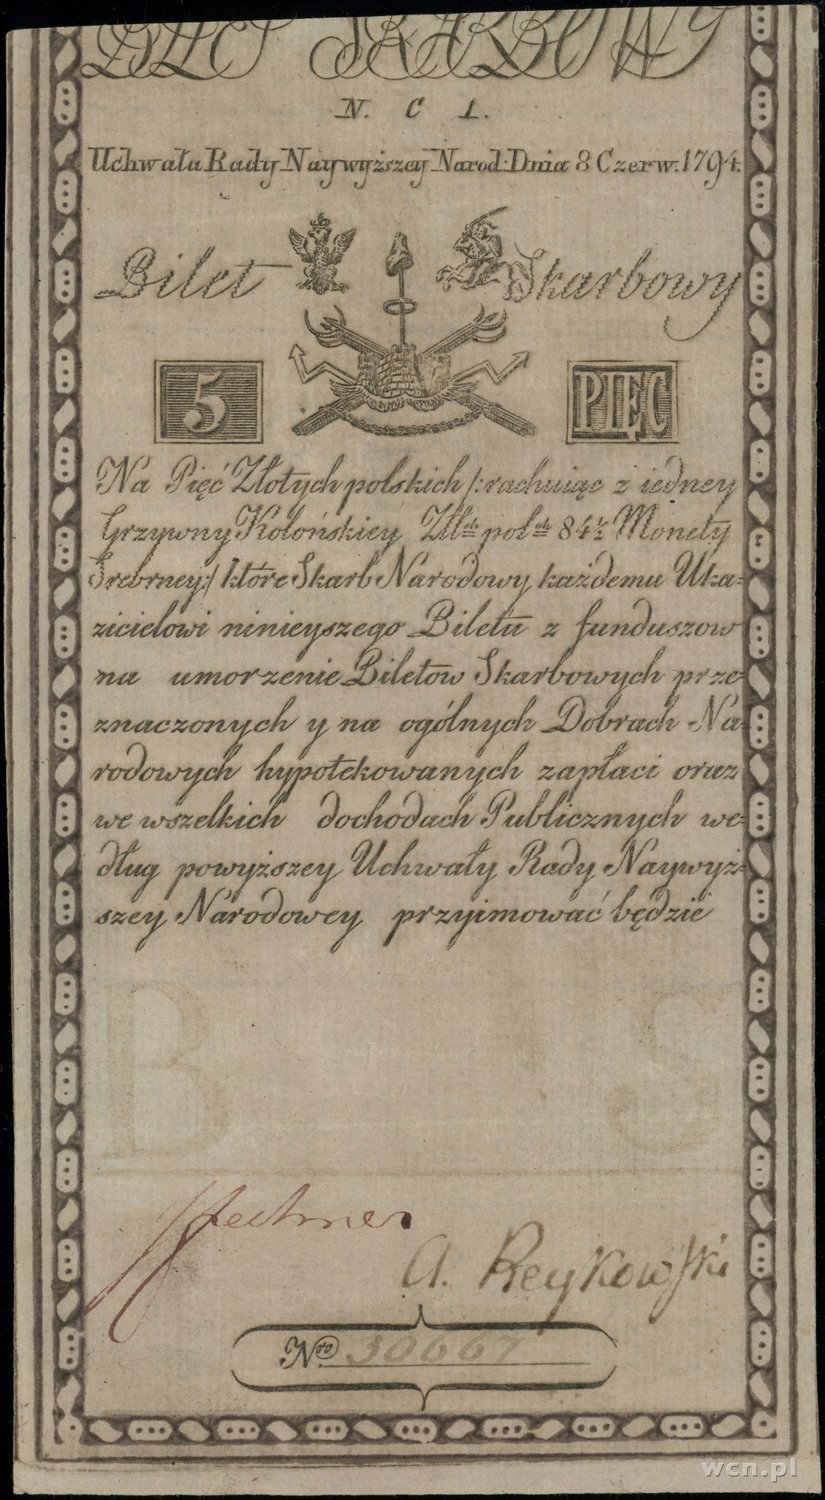 BILET SKARBOWY
N. C 1.
Uchwała Rady Naywyższey Narod: Dnia 8 Czerw. 1794.
Bilet Skarbowy
5 PIĘC
Na Pięć Złotych polskich /: rachuiąc z iedney
Grzywny Kolońskiey Złł ch pol ch 84 ½ Monety
Srebrney :/ które Skarb Narodowy każdemu Uka-
zicielowi ninieyszego Biletu z funduszow
na umorzenie Biletow Skarbowych prze-
znaczonych y na ogólnych Dobrach Na-
rodowych hypotekowanych zapłaci oraz
we wszelkich dochodach Publicznych we-
dług powyższey Uchwały Rady Naywyż-
szey Narodowey przyimować będzie
B S
Fechner
A. Reykowski
Nro 30667
wcn.pl